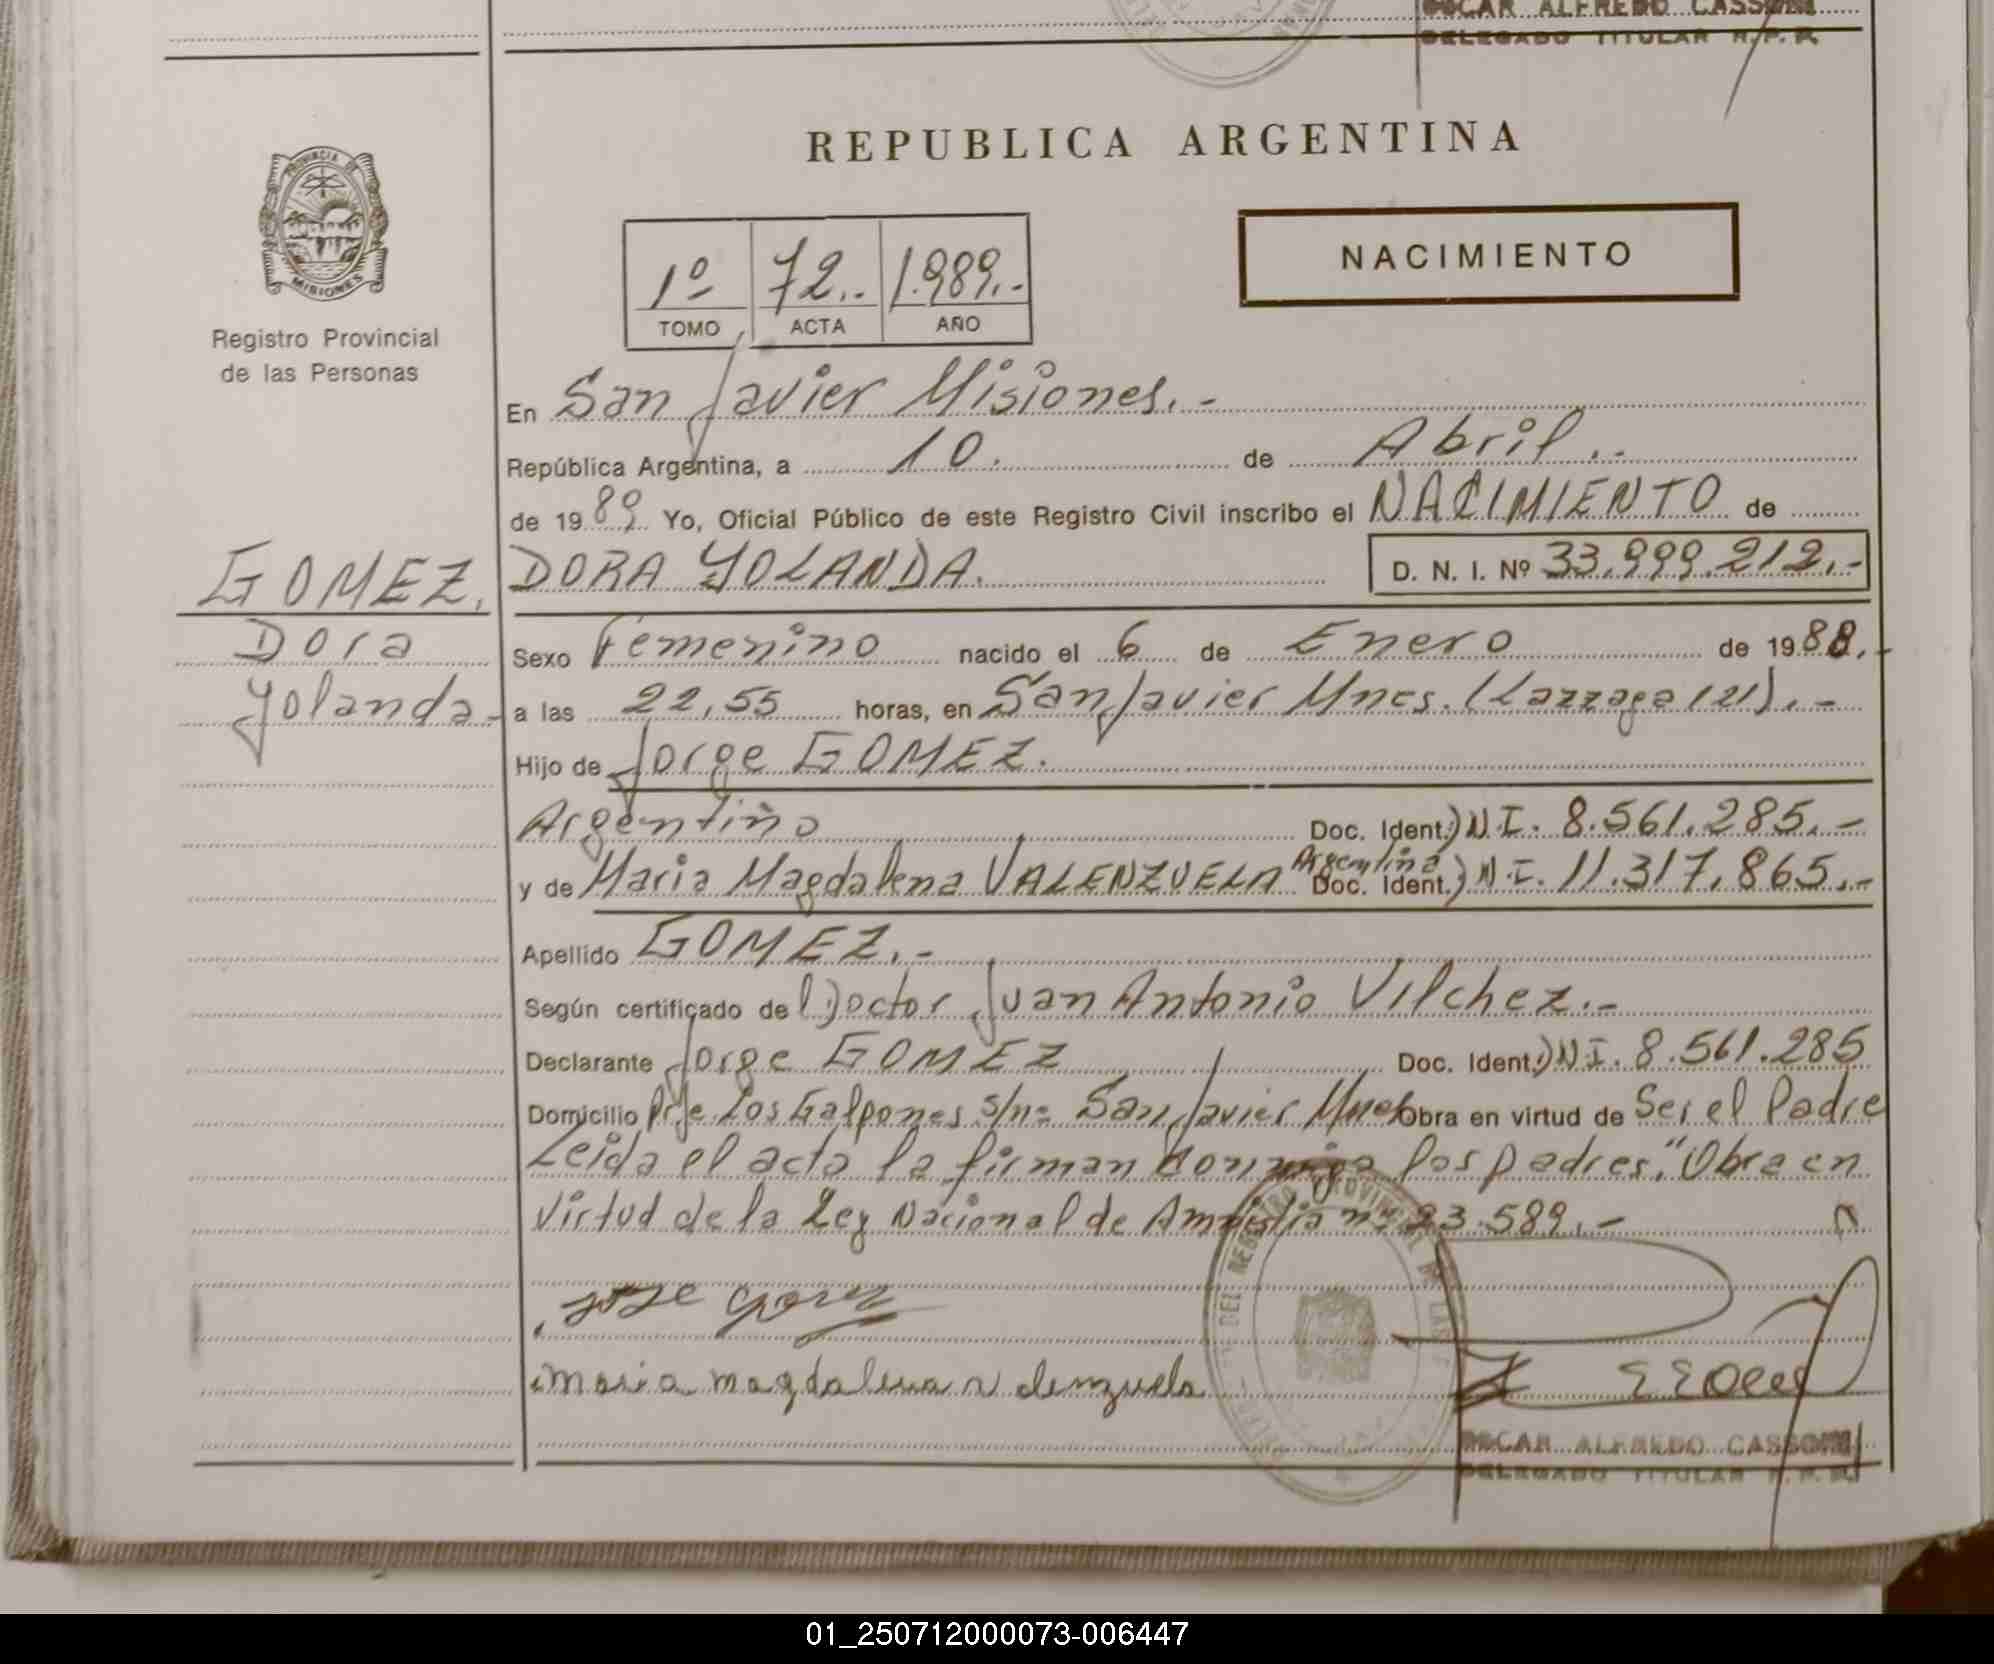 OSCAR ALFREDO CASSONI
DELEGADO TITULAR R.P.P.
PROVINCIA DE
MISIONES
Registro Provincial
de las Personas
REPUBLICA ARGENTINA
NACIMIENTO
1º 72.. 1.989.-
TOMO ACTA AÑO
En San Javier Misiones.-
República Argentina, a 10. de Abril..
de 1989 Yo, Oficial Público de este Registro Civil inscribo el NACIMIENTO de
GOMEZ. DORA YOLANDA. D. N. I. Nº 33.999.212.-
Dora Sexo Femenino nacido el 6 de Enero de 1988.-
Yolanda- a las 22,55 horas, en San Javier Mnes. (Lazzaga 121).-
Hijo de Jorge GOMEZ.
Argentino Doc. Ident. D N.I. 8.561.285.-
Argentina
y de Maria Magdalena VALENZUELA Doc. Ident. D N.I. 11.317.865.-
Apellido GOMEZ.-
Según certificado de Doctor Juan Antonio Vilchez.-
Declarante Jorge GOMEZ Doc. Ident. D N.I. 8.561.285
Domicilio Pje Los Galpones s/nº San Javier Mnes Obra en virtud de Ser el Padre
Leida el acta la firman conmigo los padres. "Obra en
Virtud de la Ley Nacional de Amnistia nº 23.589.-
Maria magdalena valenzuela
OSCAR ALFREDO CASSONI
DELEGADO TITULAR R.P.P.
01_250712000073-006447